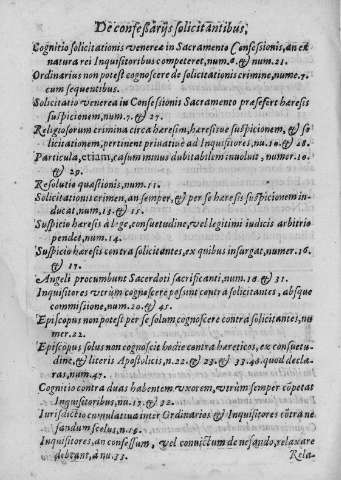 De confessarijs solicitantibus,
Cognitio solicitationis venereæ in Sacramento Confessionis, an ex
natura rei Inquisitoribus competeret, num. & num. 21.
Ordinarius non potest cognoscere de solicitationis crimine, nume. 7.
cum sequentibus.
Solicitatio venerea in Confessionis Sacramento præsefert hæresis
suspicionem, num. 7. & 27.
Religiosorum crimina circa hæresim, hæresisve suspicionem, & so
licitationem, pertinent privative ad Inquisitores, nu. 10. & 28.
Particula, etiam, casum minus dubitabilem inuoluit, numer. 10.
& 29.
Resolutio quæstionis, num. 11.
Solicitationis crimen, an semper, & per se hæresis suspicionem in-
ducat, num. 13. & 15.
Suspicio hæresis à lege, consuetudine, vel legitimi iudicis arbitrio
pendet, num. 14.
Suspicio hæresis contra solicitantes, ex quibus insurgat, numer. 16.
& 17.
Angeli procumbunt Sacerdoti sacrificanti, num. 18. & 31.
Inquisitores vtrùm cognoscere possint contra solicitantes, absque
commissione, num. 20. & 45.
Episcopus non potest per se solum cognoscere contra solicitantes, nu
mer. 22.
Episcopus solus non cognoscit hodie contra hæreticos, ex consuetu-
dine, & literis Apostolicis, n. 22. & 23. & 33. 46. quod decla-
ras, num. 47.
Cognitio contra duas habentem vxorem, vtrùm semper cōpetat
Inquisitoribus, nu. 17. & 32.
Iurisdictio cumulatiua inter Ordinarios & Inquisitores cōtra ne
fandum scelus, n.
Inquisitores, an confessum, vel conuictum de nefando, relaxare
debeant, à nu. 33.
Rela-